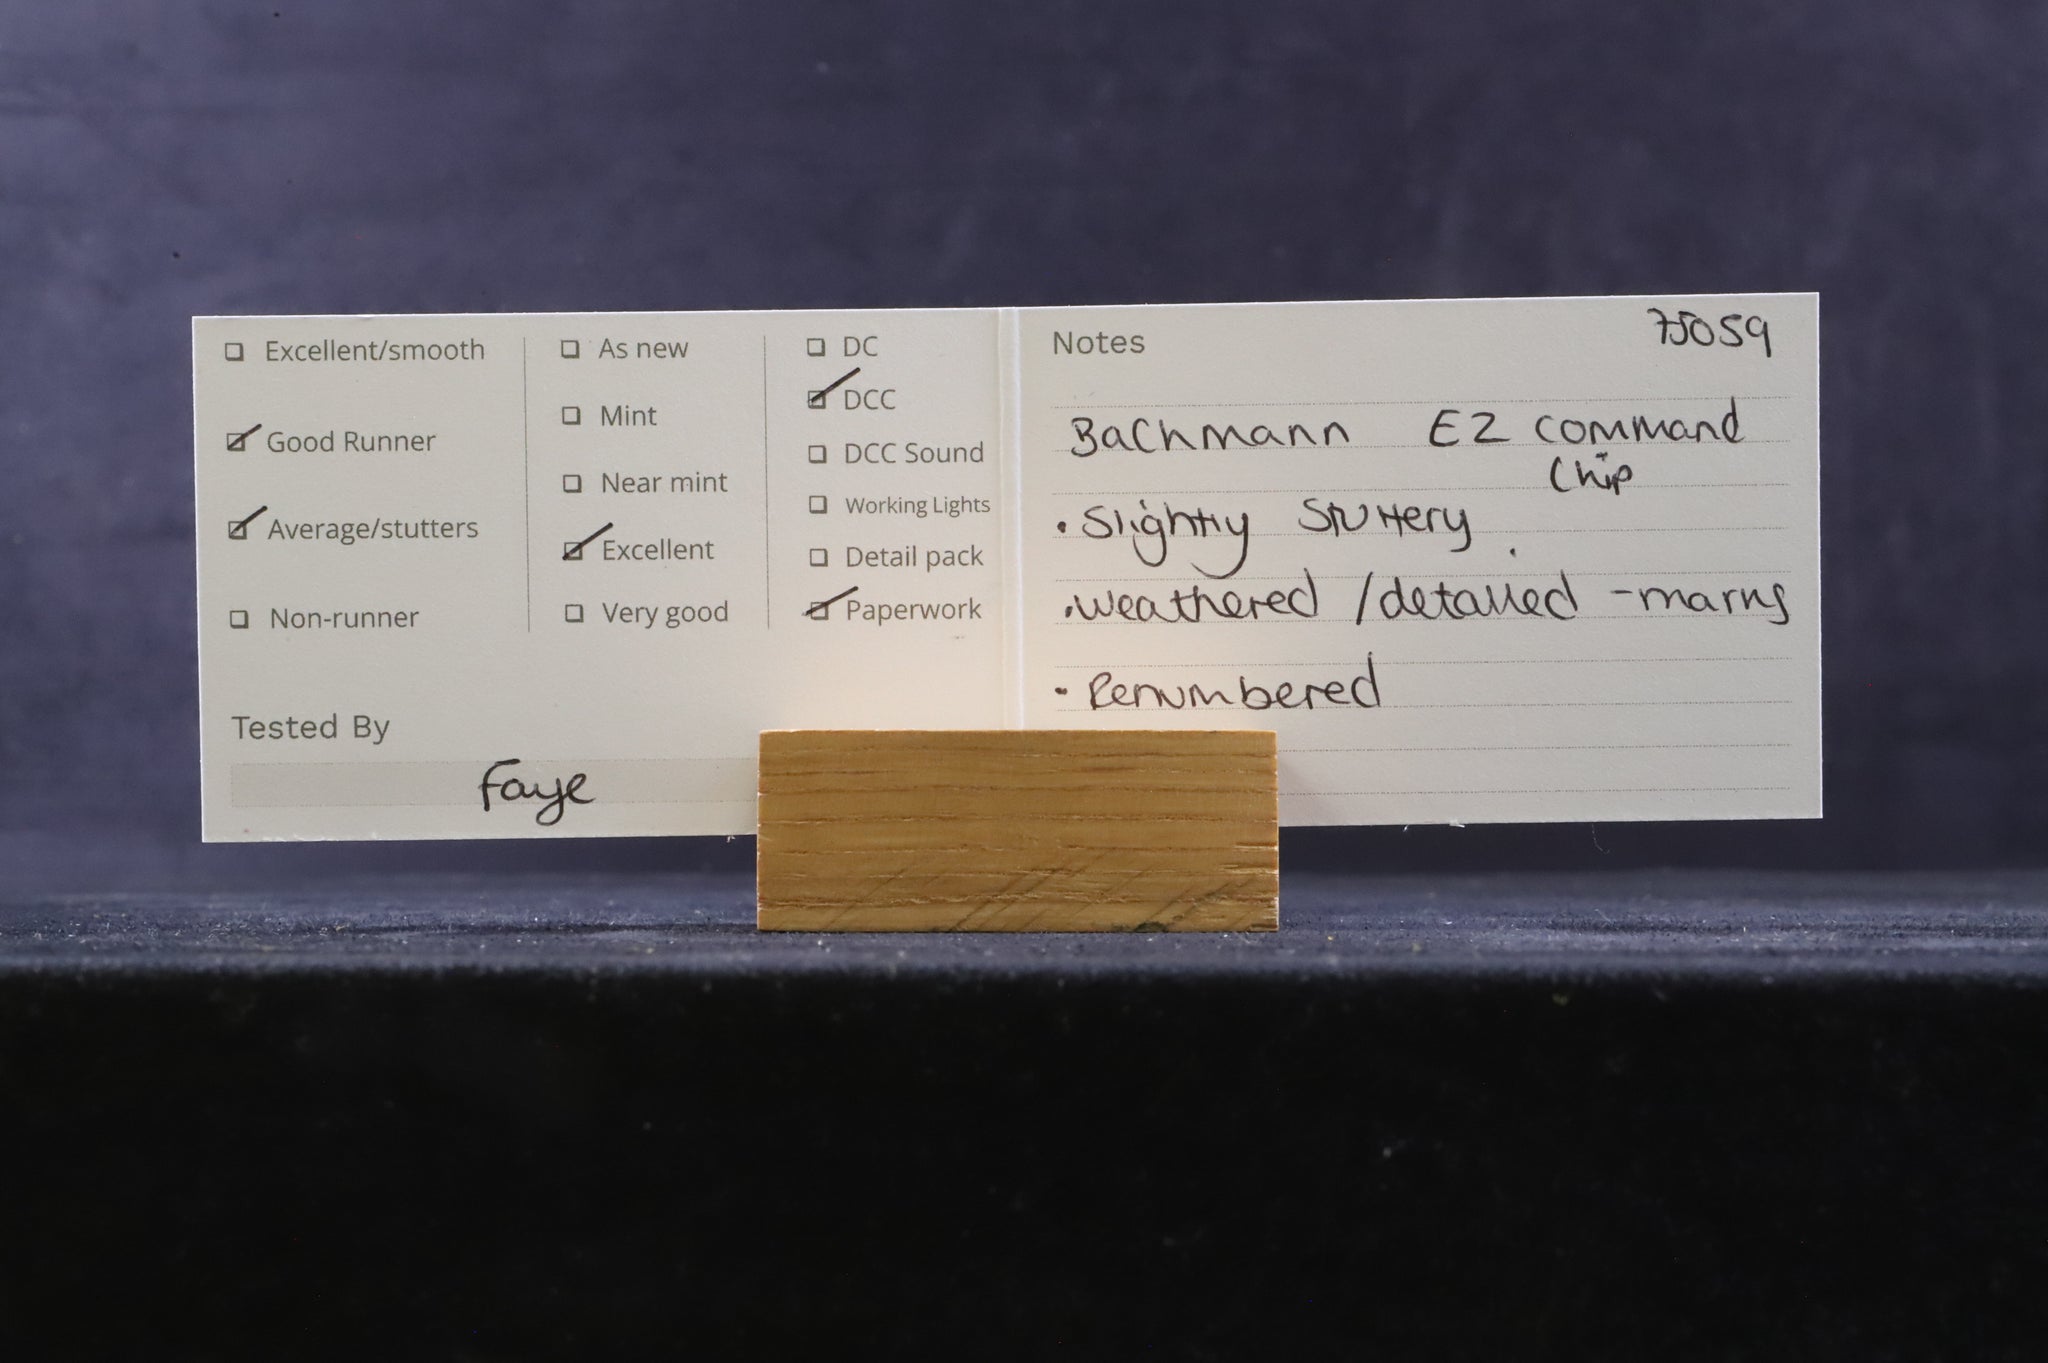 ☐ Excellent/smooth
☑ Good Runner
☑ Average/stutters
☐ Non-runner
☐ As new
☐ Mint
☐ Near mint
☑ Excellent
☐ Very good
☐ DC
☑ DCC
☐ DCC Sound
☐ Working Lights
☐ Detail pack
☑ Paperwork
Tested By
Faye
Notes
75059
Bachmann EZ command
Chip
• Slightly Stuttery
• Weathered / detailed - marks
• Renumbered